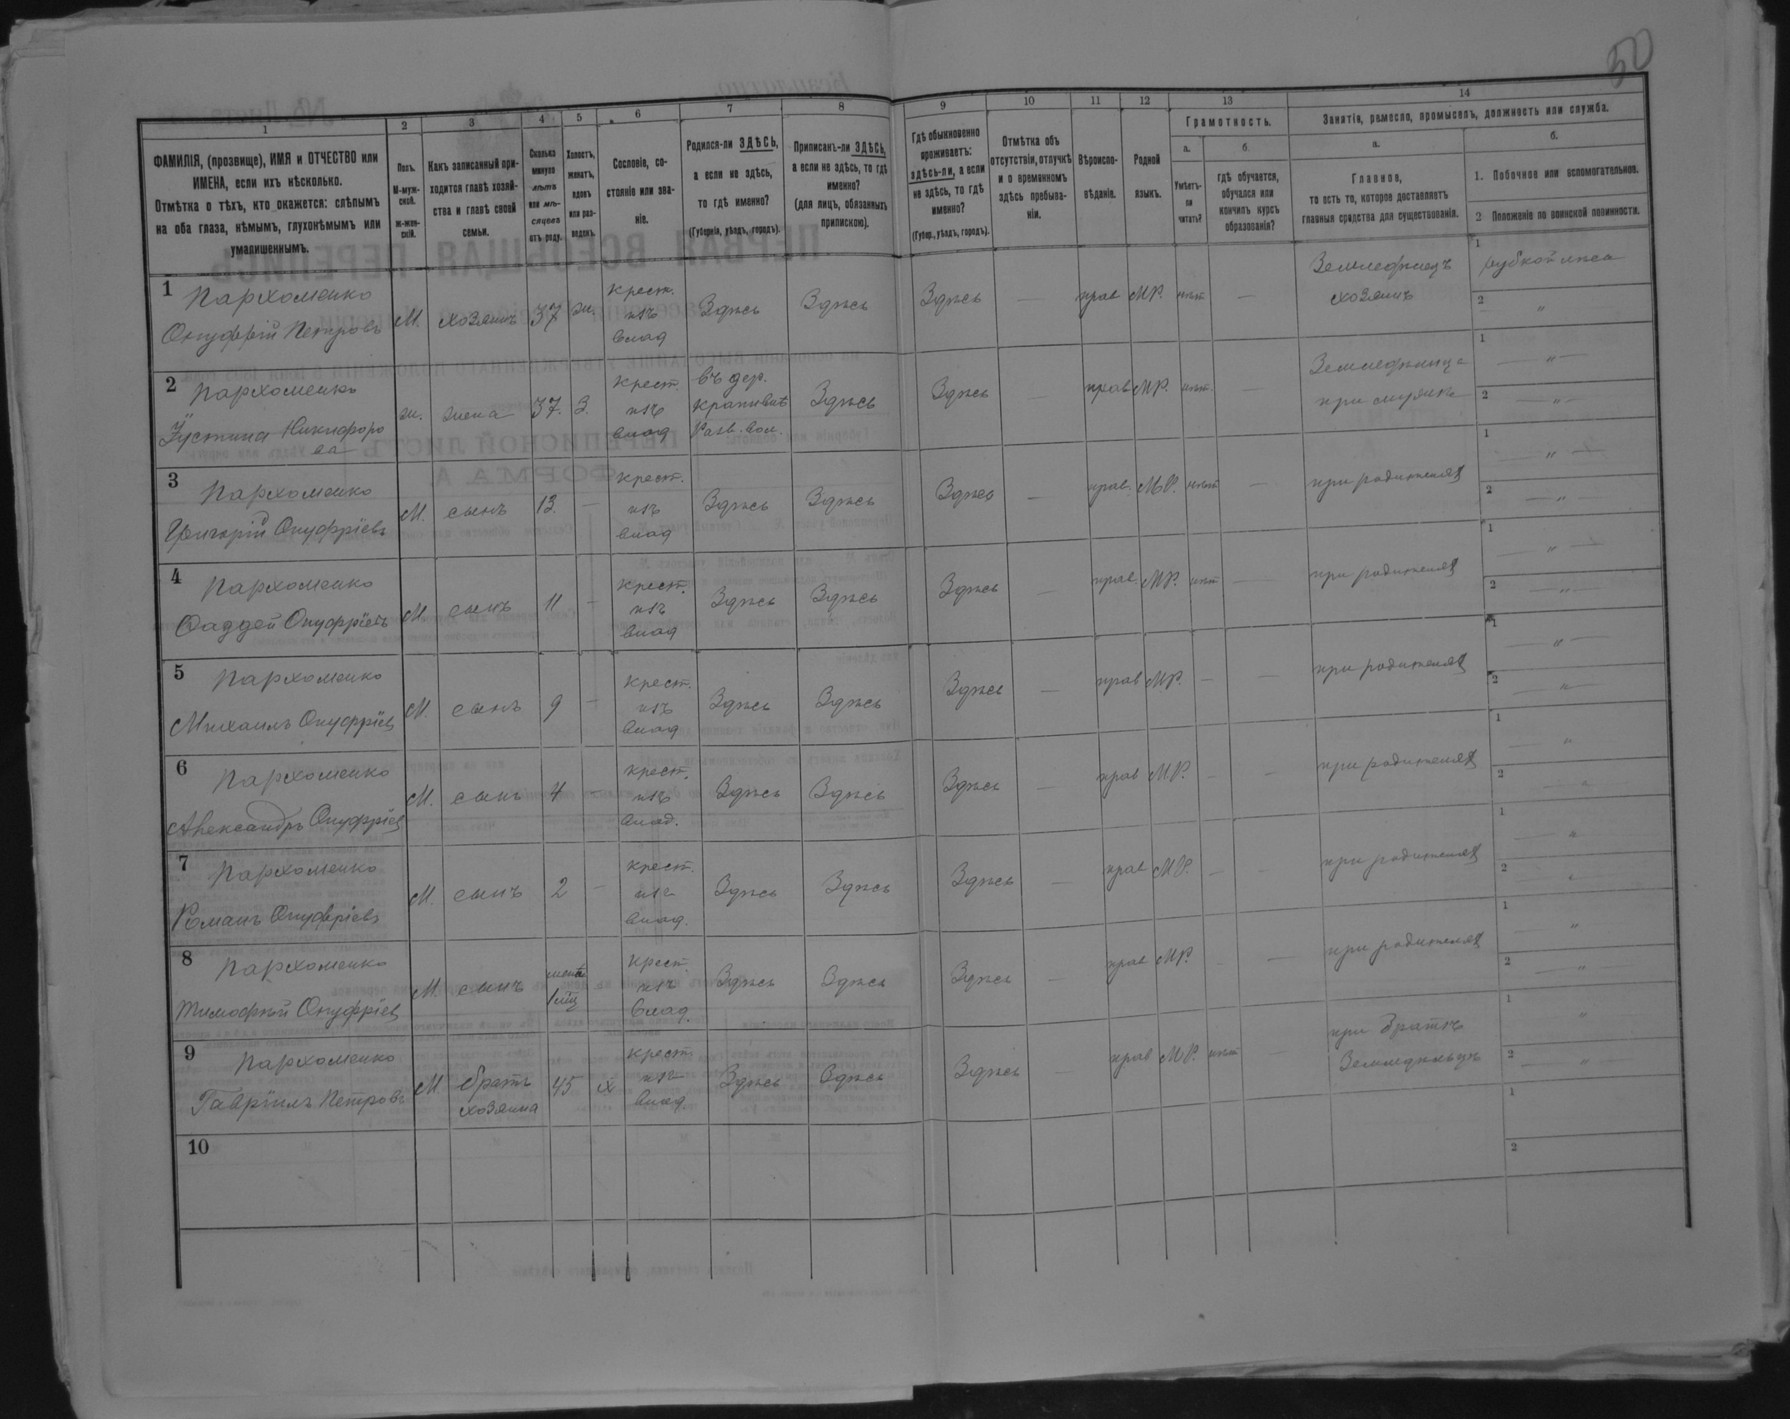 50
1
2
3
4
5
6
7
8
9
10
11
12
13
14
ФАМИЛІЯ, (прозвище), ИМЯ и ОТЧЕСТВО или
ИМЕНА, если ихъ нѣсколько.
Отмѣтка о тѣхъ, кто окажется: слѣпымъ
на оба глаза, нѣмымъ, глухонѣмымъ или
умалишеннымъ.
Полъ.
М-муж-
ской.
Ж-жен-
скій.
Какъ записанный при-
ходится главѣ хозяй-
ства и главѣ своей
семьи.
Сколько
минуло
лѣтъ
или мѣ-
сяцевъ
отъ роду.
Холостъ,
женатъ,
вдовъ
или раз-
веденъ.
Сословіе, со-
стояніе или зва-
ніе.
Родился-ли ЗДѢСЬ,
а если не здѣсь,
то гдѣ именно?
(Губернія, уѣздъ, городъ).
Приписанъ-ли ЗДѢСЬ,
а если не здѣсь, то гдѣ
именно?
(для лицъ, обязанныхъ
припискою).
Гдѣ обыкновенно
проживаетъ:
здѣсь-ли, а если
не здѣсь, то гдѣ
именно?
(Губер., уѣздъ, городъ).
Отмѣтка объ
отсутствіи, отлучкѣ
и о временномъ
здѣсь пребыва-
ніи.
Вѣроиспо-
вѣданіе.
Родной
языкъ.
Грамотность.
а.
Умѣетъ-
ли
читать?
б.
гдѣ обучается,
обучался или
кончилъ курсъ
образованія?
Занятіе, ремесло, промыселъ, должность или служба.
а.
Главное,
то есть то, которое доставляетъ
главныя средства для существованія.
б.
1. Побочное или вспомогательное.
2 Положеніе по воинской повинности.
1 Пархоменко
Онуфрій Петровъ
М. хозяинъ 37 ж.
крест.
изъ
влад
Здѣсь Здѣсь Здѣсь — прав МР. нѣт —
Земледѣлецъ
хозяинъ
1 рубкой лѣса
2 "
2 Пархоменко
Устинia Никифоро
ва
ж. жена 37. З.
Крест.
изъ
влад
въ дер.
Крапивнѣ
Разв. вол.
Здѣсь Здѣсь — прав МР. нѣт —
Земледѣлица
при мужѣ
1 "
2 "
3 Пархоменко
Григорій Онуфріевъ
М. сынъ 13 —
крест.
изъ
влад
Здѣсь Здѣсь Здѣсь — прав. МР. нѣт —
при родителях
1 "
2 "
4 Пархоменко
Фаддей Онуфріевъ
М. сынъ 11 —
крест.
изъ
влад
Здѣсь Здѣсь Здѣсь — прав. МР. нѣт —
при родителях
1 "
2 "
5 Пархоменко
Михаилъ Онуфріев
М. сынъ 9 —
крест.
изъ
влад
Здѣсь Здѣсь Здѣсь — прав МР. — —
при родителях
1 "
2 "
6 Пархоменко
Александръ Онуфріев
М. сынъ 4 —
крест.
изъ
влад.
Здѣсь Здѣсь Здѣсь — прав МР. — —
при родителях
1 "
2 "
7 Пархоменко
Романъ Онуфріевъ
М. сынъ 2 —
крест.
изъ
влад.
Здѣсь Здѣсь Здѣсь — прав МР. — —
при родителях
1 "
2 "
8 Пархоменко
Тимофѣй Онуфріев
М. сынъ
крест.
изъ
влад.
Здѣсь Здѣсь Здѣсь — прав МР. — —
при родителях
1 "
2 "
9 Пархоменко
Гавріилъ Петровъ
М. братъ
хозяина
45 х
крест.
изъ
влад
Здѣсь Здѣсь Здѣсь — прав МР. нѣт —
при братѣ
Земледѣлецъ
1 "
2 "
10
1
2